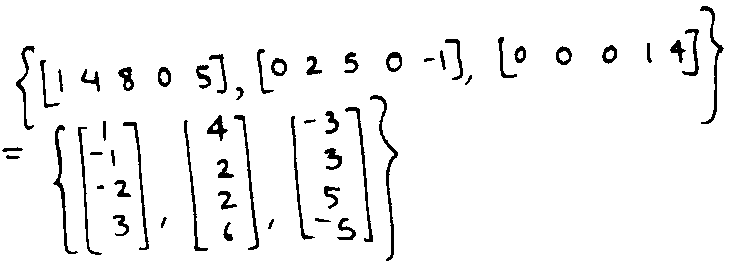 {[1 4 8 0 5], [0 2 5 0 -1], [0 0 0 1 4]}
= {[1 -1 -2 3], [4 2 2 6], [-3 3 5 -5]}